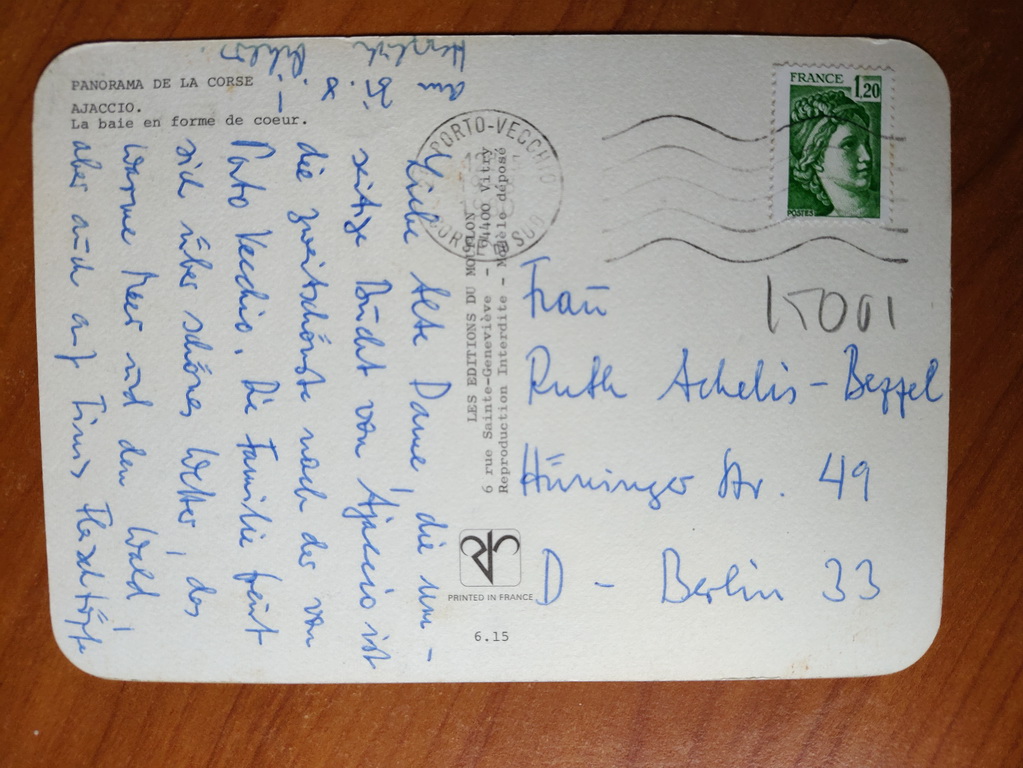 PANORAMA DE LA CORSE
AJACCIO.
La baie en forme de coeur.
FRANCE 1,20
POSTES
PORTO-VECCHIO
CORSE DU SUD
LES EDITIONS DU MOUFLON
6 rue Sainte-Geneviève - 94400 Vitry
Reproduction Interdite - Modèle déposé
PRINTED IN FRANCE
6.15
Liebe Alte Dame, die um-
seitige Bucht von Ajaccio ist
die zweitschönste nach der von
Porto Vecchio. Die Familie freut
sich über schönes Wetter, das
warme Meer und den Wald,
aber auch auf Timis Fleischtöpfe
am
Herzlich
Frau
Ruth Achelis-Bezzel
Hüninger Str. 49
D - Berlin 33